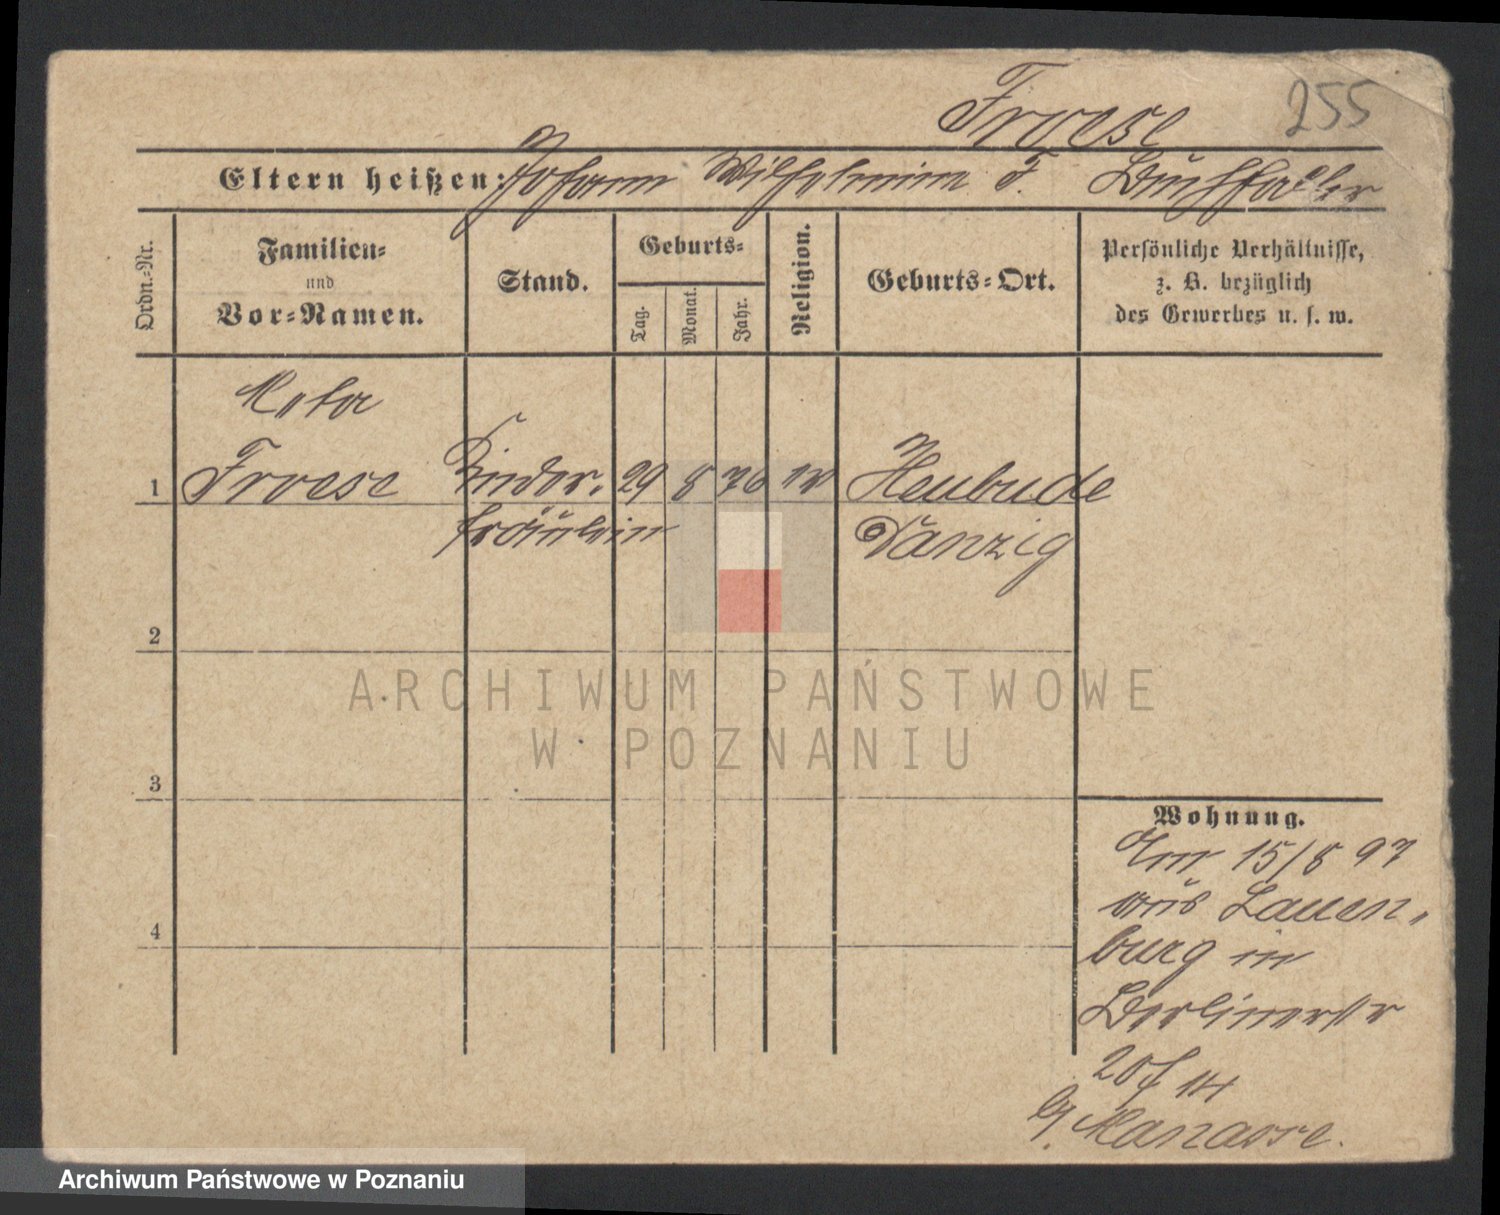 Froese 255
Eltern heißen: Johann Wilhelmine F. Buchhalter
Ordn.-Nr.
Familien-
und
Vor-Namen.
Stand.
Geburts-
Tag.
Monat.
Jahr.
Religion.
Geburts-Ort.
Persönliche Verhältnisse,
z. B. bezüglich
des Gewerbes u. s. w.
Meta
1 Froese Kinder- 29 8 76 Heubude
fräulein Danzig
2
3
4
ARCHIWUM PAŃSTWOWE
W POZNANIU
Wohnung.
Am 15/8 97
aus Lauen-
burg in
Berlinerstr
20
Manasse.
Archiwum Państwowe w Poznaniu